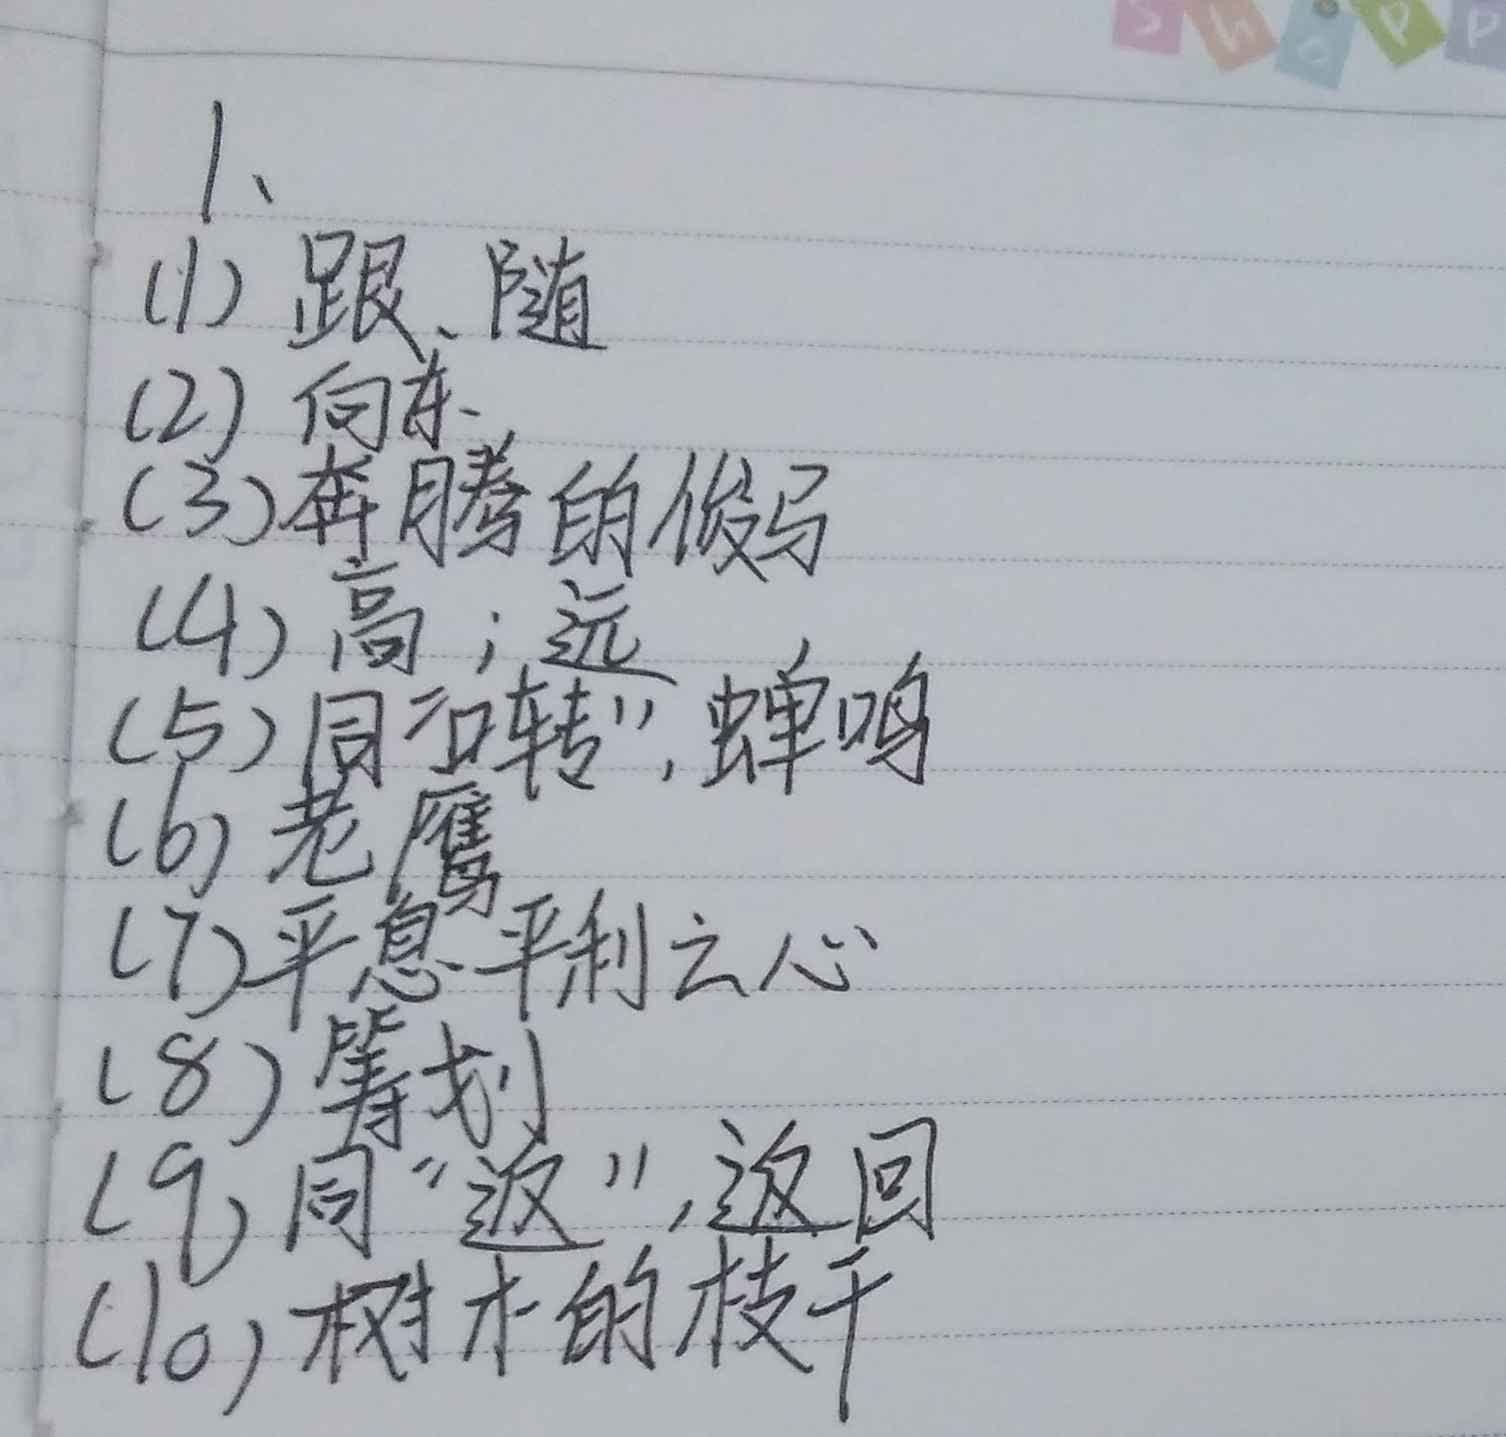 Shopp
1、
(1) 跟、随
(2) 向东
(3) 奔腾的俊马
(4) 高；远
(5) 同“啭”，蝉鸣
(6) 老鹰
(7) 平息平利之心
(8) 筹划
(9) 同“返”，返回
(10) 树木的枝干